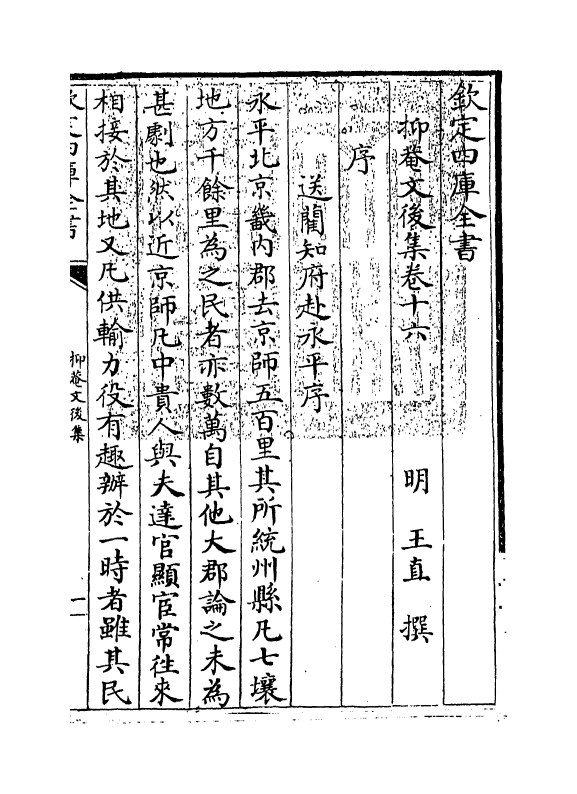 欽定四庫全書
抑菴文後集卷十六　　明　王直　撰
序
送藺知府赴永平序
永平北京畿内郡去京師五百里其所統州縣凡七壤
地方千餘里為之民者亦數萬自其他大郡論之未為
甚劇也然以近京師凡中貴人與夫達官顯宦常往來
相接於其地又凡供輸力役有趣辦於一時者雖其民
欽定四庫全書
抑菴文後集
一